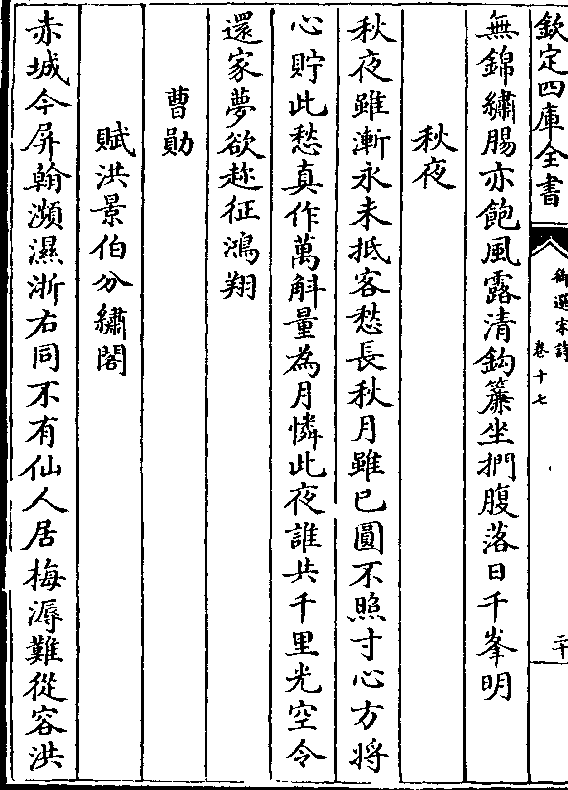 欽定四庫全書
御選宋詩
卷十七
二十
無錦繡腸亦飽風露清鈎簾坐捫腹落日千峯明
秋夜
秋夜雖漸永未抵客愁長秋月雖已圓不照寸心方將
心貯此愁真作萬斛量為月憐此夜誰共千里光空令
還家夢欲趂征鴻翔
曹勛
賦洪景伯分繡閣
赤城今屏翰瀕濕浙右同不有仙人居梅溽難從容洪